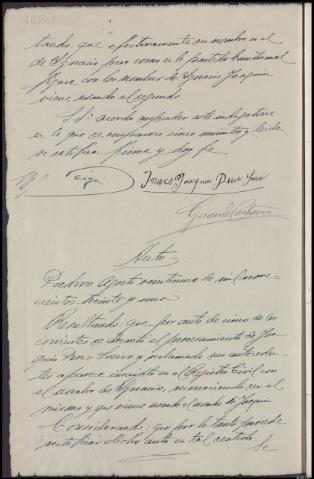 tando; que efectivamente su nombre es el
de Ignacio pero como en la partida bautismal
figura con los nombres de Ignacio Joaquin
viene usando el segundo
S Sª acordó suspender esta indagatoria
en la que se
se ratifica firma y doy fe
Joaquin
Auto
Padron Agosto veinticinco de mil nove-
cientos treinta y uno
Resultando: que por auto de cinco de los
corrientes se decretó el procesamiento de Joa-
quin y reclamado sus antecede-
tes aparece inscrito en el Registro Civil con
el nombre de Ignacio, reconociendo en el
mismo y que viene usando el nombre de Joaquin
Considerando: que por lo tanto procede
rectificar dicho auto en tal sentido
Se